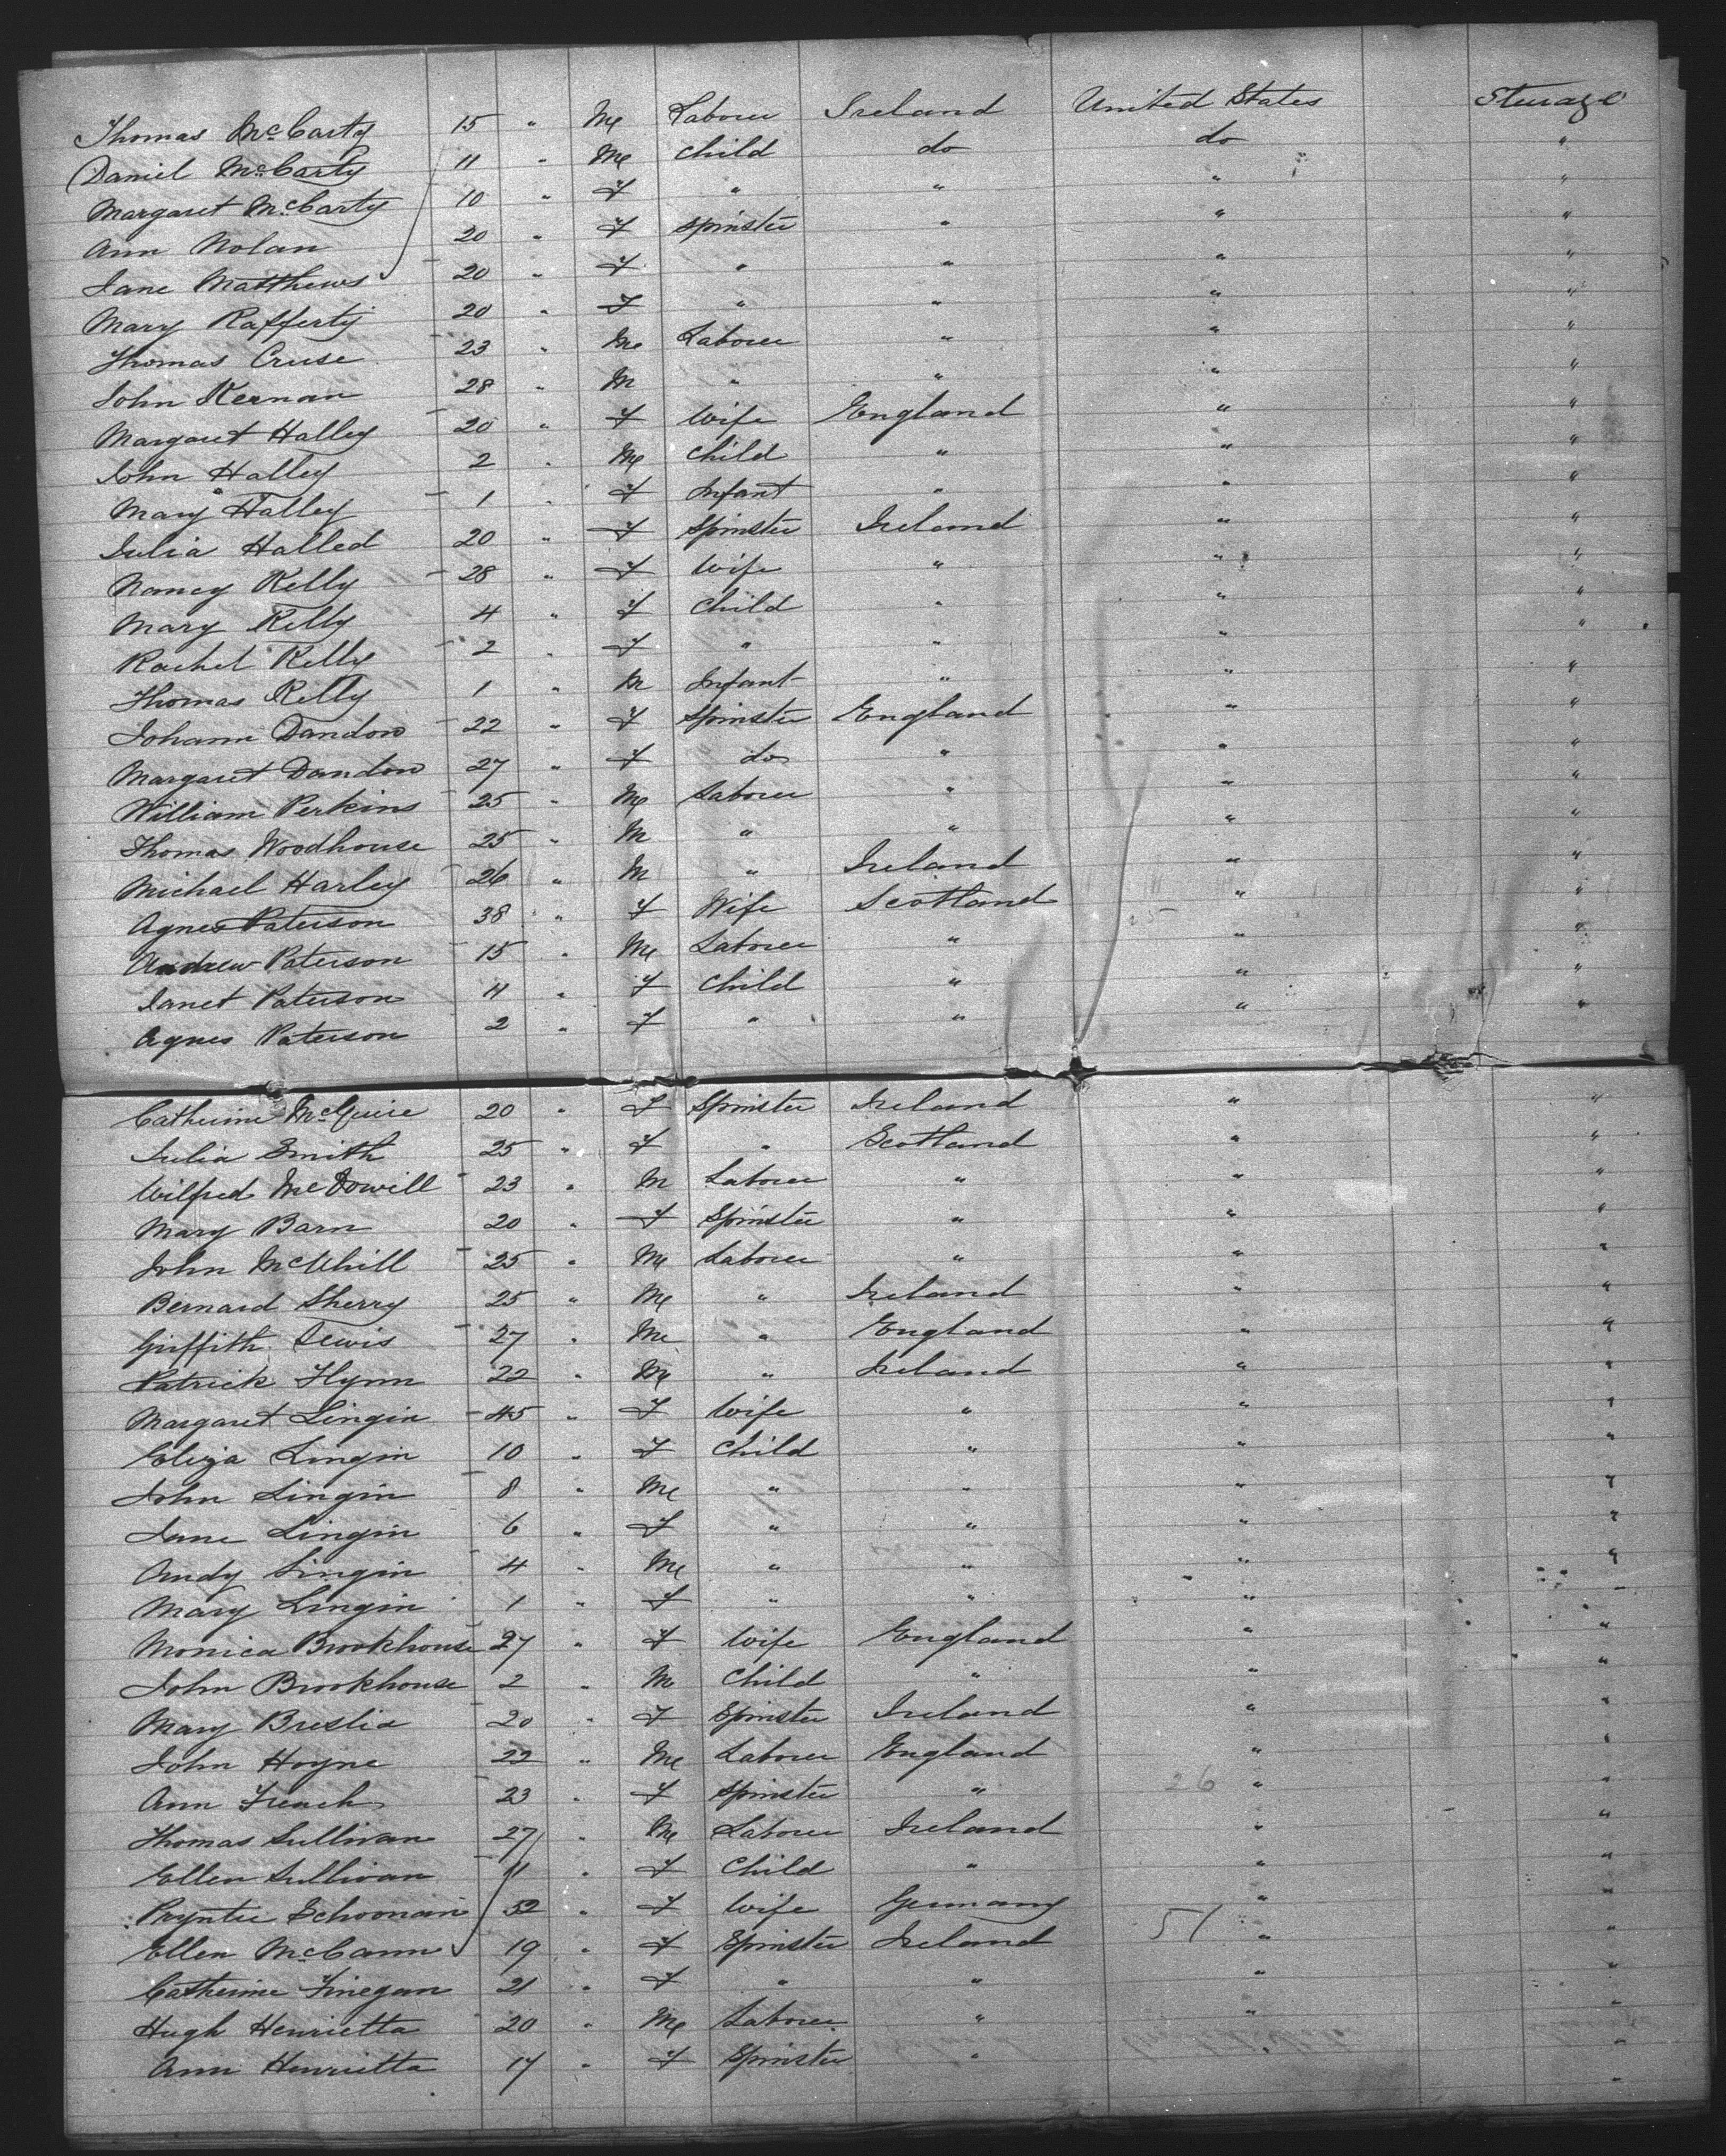 Thomas McCarty 15 " M Laborer Ireland United States Sterage
Daniel McCarty 11 " M Child do do "
Margaret McCarty 10 " F " " " "
Ann Nolan 20 " F Spinster " " "
Jane Matthews 20 " F " " " "
Mary Rafferty 20 " F " " " "
Thomas Cruse 23 " M Laborer " " "
John Kernan 28 " M " " " "
Margaret Halley 20 " F Wife England " "
John Halley 2 " M Child " " "
Mary Halley 1 " F Infant " " "
Julia Halled 20 " F Spinster Ireland " "
Nancy Kelly 28 " F Wife " " "
Mary Kelly 4 " F Child " " "
Rachel Kelly 2 " F " " " "
Thomas Kelly 1 " M Infant " " "
Johann Dandow 22 " F Spinster England " "
Margaret Dandow 27 " F do " " "
William Perkins 25 " M Laborer " " "
Thomas Woodhouse 25 " M " " " "
Michael Harley 26 " M " Ireland " "
Agnes Paterson 38 " F Wife Scotland " "
Andrew Paterson 15 " M Laborer " " "
Janet Paterson 11 " F Child " " "
Agnes Paterson 2 " F " " " "
Catherine McGuire 20 " F Spinster Ireland " "
Julia Smith 25 " F " Scotland " "
Wilfred McDowill 23 " M Laborer " " "
Mary Barn 20 " F Spinster " " "
John McUhill 25 " M Laborer " " "
Bernard Sherry 25 " M " Ireland " "
Griffith Lewis 27 " M " England " "
Patrick Flynn 22 " M " Ireland " "
Margaret Lingin 45 " F Wife " " "
Eliza Lingin 10 " F Child " " "
John Lingin 8 " M " " " "
Jane Lingin 6 " F " " " "
Andy Lingin 4 " M " " " "
Mary Lingin 1 " F " " " "
Monica Brookhouse 27 " F Wife England " "
John Brookhouse 2 " M Child " " "
Mary Breslia 20 " F Spinster Ireland " "
John Hoyne 22 " M Laborer England " "
Ann French 23 " F Spinster " 26 " "
Thomas Sullivan 27 " M Laborer Ireland " "
Ellen Sullivan 11 " F Child " " "
Pryntie Schoonain 32 " F Wife Germany " "
Ellen McCann 19 " F Spinster Ireland 51 " "
Catherine Finegan 21 " F " " " "
Hugh Henrietta 20 " M Laborer " " "
Ann Henrietta 17 " F Spinster " " "